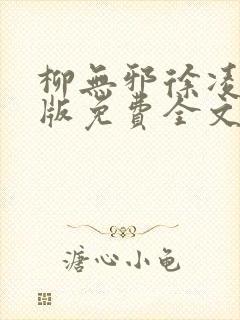 柳無邪徐凌
版免費全文
溏心小龟